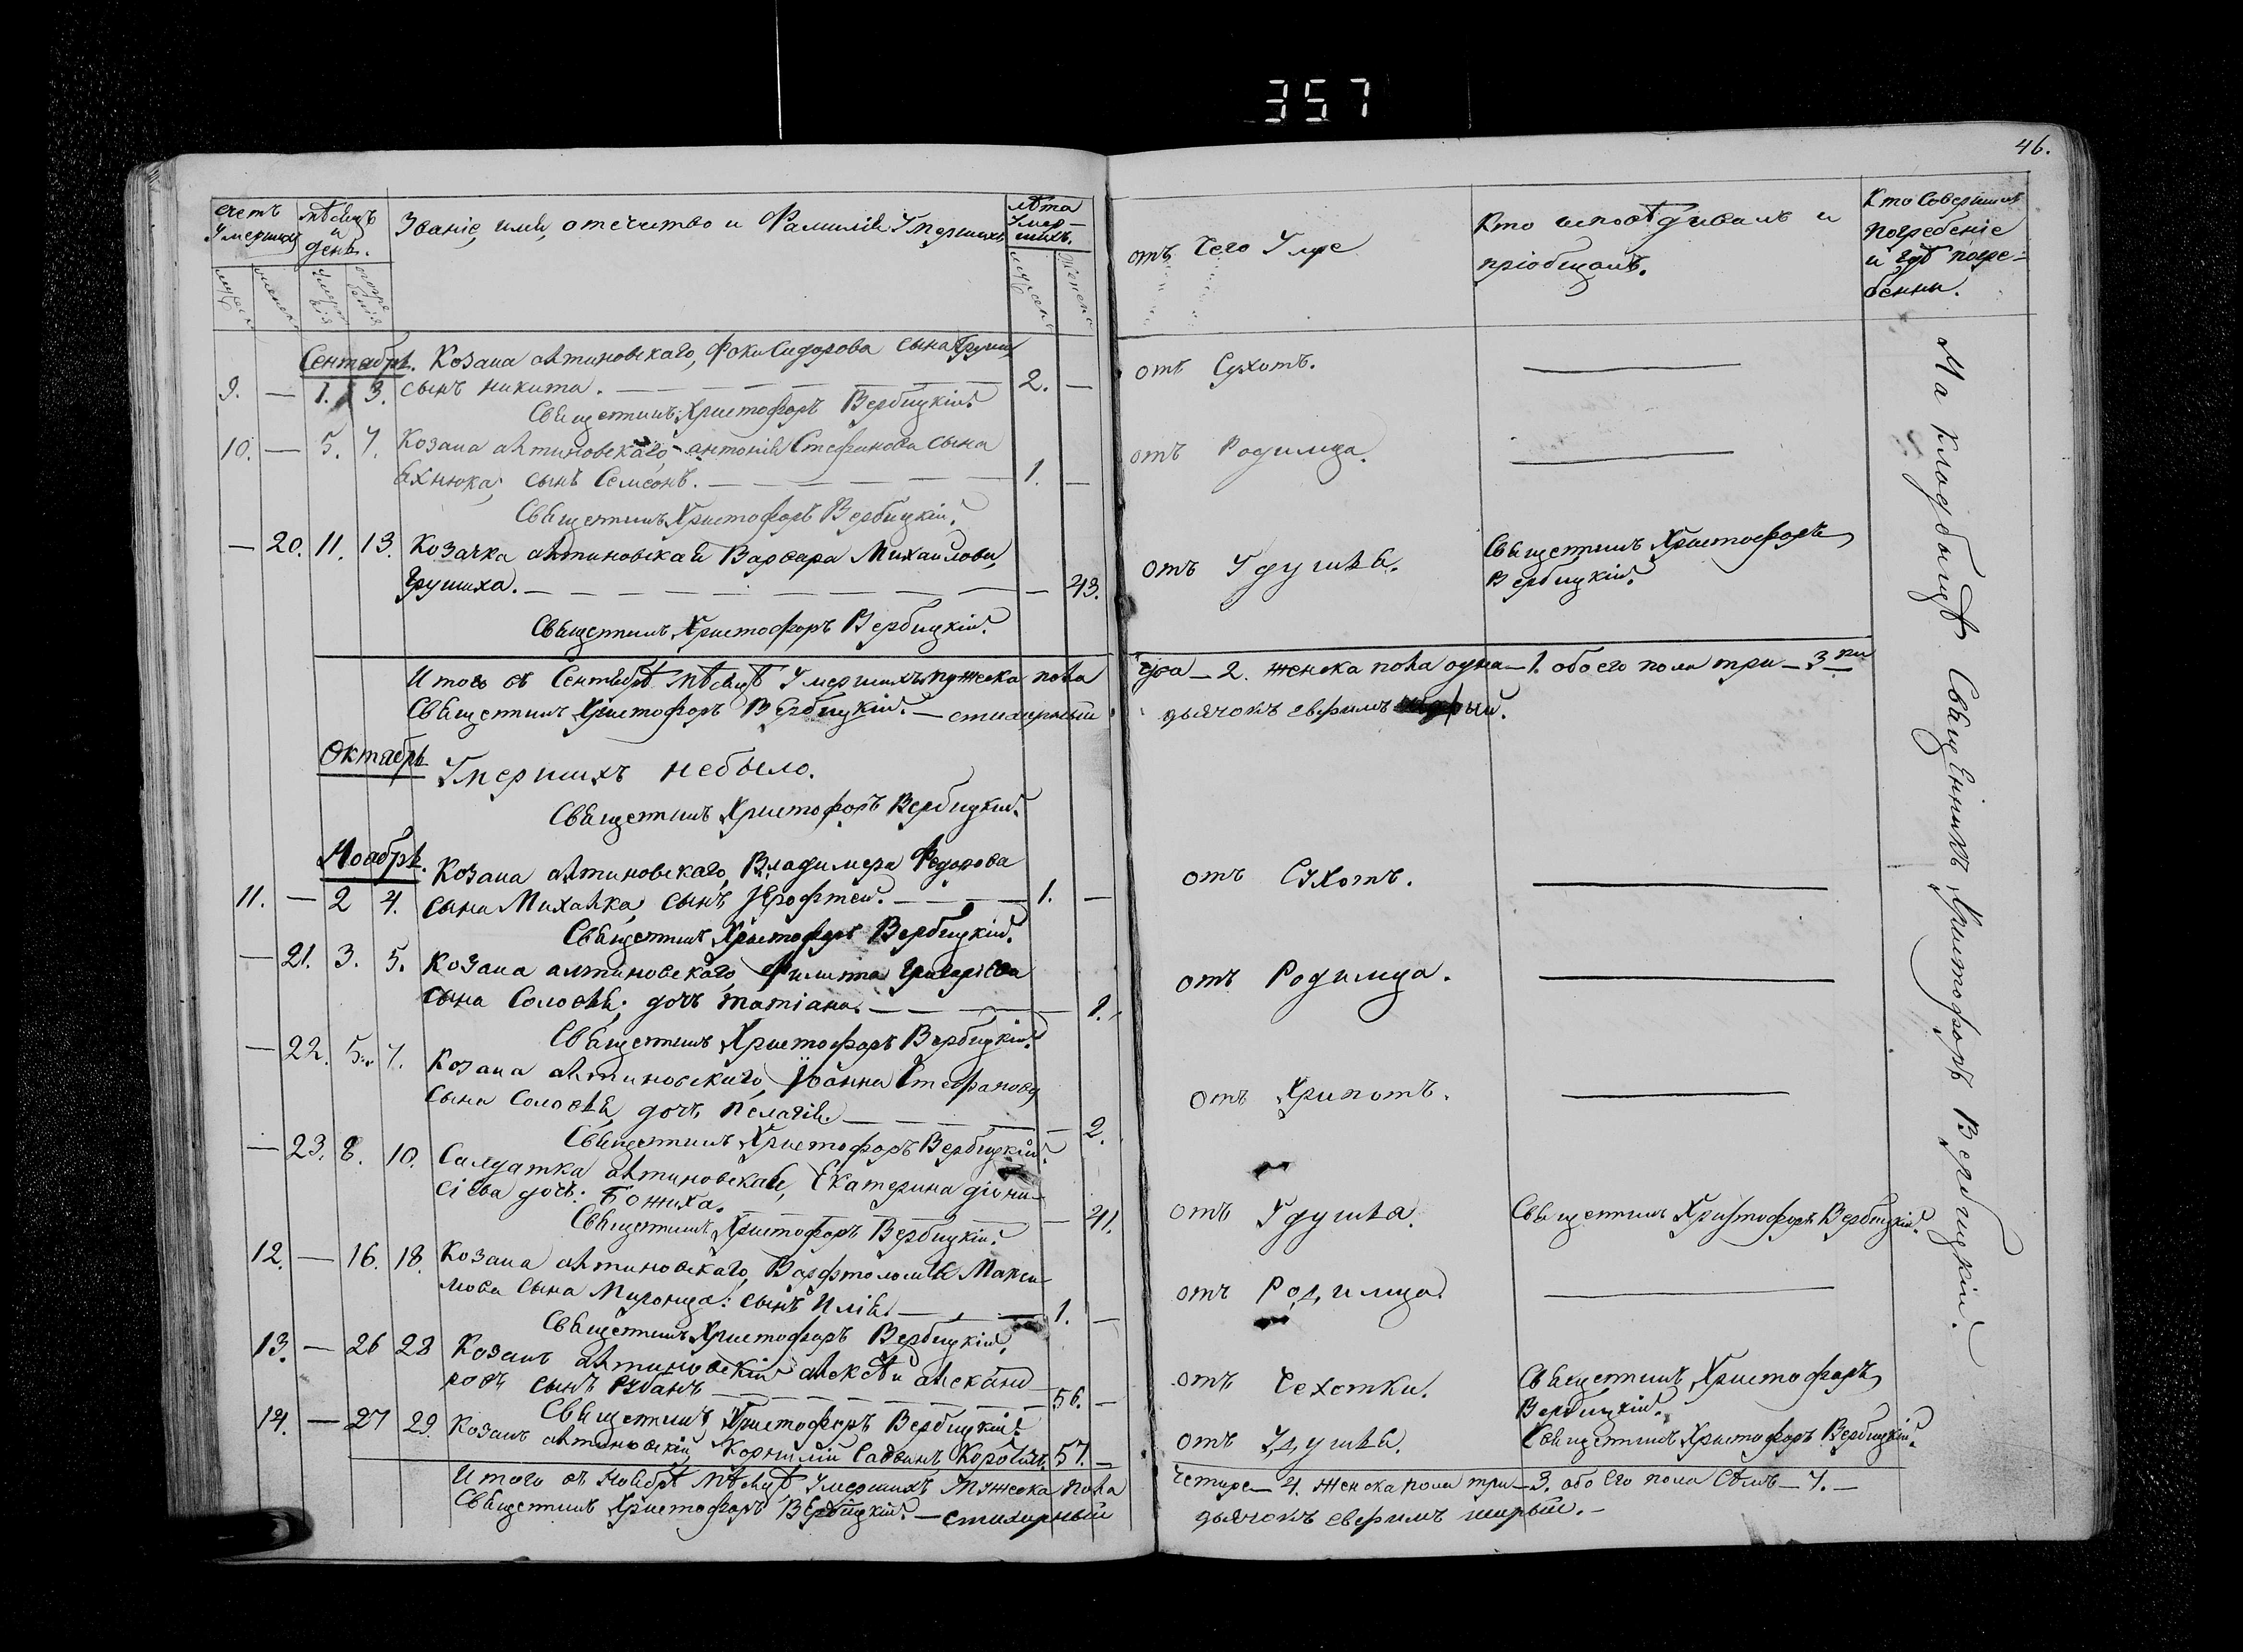 357
46.
счетъ Умершихъ
мѣсяцъ и день.
Званіе, имя, отечество и Фамилія Умершихъ
лѣта Умер-
шихъ.
отъ чего Умре
Кто исповѣдывалъ и
пріобщалъ.
Кто Совершилъ
погребеніе
и гдѣ погре-
бенны.
Сентябрь. Козака алтиновскаго, Фоки Сидорова сына Груши,
9. — 1. 3. сынъ никита. — 2. — отъ Сухотъ. —
Священникъ Христофоръ Вербицкій.
10. — 5. 7. Козака алтиновскаго, антонія Стефанова сына
Яхнюка, сынъ Семсонъ. — 1. — отъ Родимца. —
Священникъ Христофоръ Вербицкій.
— 20. 11. 13. Козачка алтиновская Варвара Михаилова,
Грушиха. — 43. отъ Удушья. Священникъ Христофоръ
Вербицкій.
Священникъ Христофоръ Вербицкій.
Итого въ Сентябрѣ мѣсяцѣ Умершихъ мужеска пола два — 2. женска пола одна — 1. обоего пола три — 3 ри
Священникъ Христофоръ Вербицкій. — стихарный дьячокъ евфимъ
Октябрь
Умершихъ небыло.
Священникъ Христофоръ Вербицкій.
Ноябрь. Козака алтиновскаго, Владимера Федорова
11. — 2 4. сына Михалка, сынъ Іерофтей. — 1. — отъ Сухотъ. —
Священникъ Христофоръ Вербицкій.
— 21. 3. 5. Козака алтиновскаго, Филиппа Григоріева
сына Соловья; дочь татіана. — 1. отъ Родимца. —
Священникъ Христофоръ Вербицкій.
— 22. 5. 7. Козака алтиновскаго, Іоанна Стефанова
сына Соловья, дочь пелагія — 2. отъ Хрипотъ. —
Священникъ Христофоръ Вербицкій.
— 23. 8. 10. Салдатка алтиновская, Екатерина діони-
сіева дочь: Божиха. — 41. отъ Удушья. Священникъ Христофоръ Вербицкій.
Священникъ Христофоръ Вербицкій.
12. — 16. 18. Козака алтиновскаго, Варфтоломея Макси-
мова сына Миронца: сынъ Илія. — 1. — отъ Родимца. —
Священникъ Христофоръ Вербицкій.
13. — 26 28 Козакъ алтиновскій алексѣй алеканд
ровъ сынъ Рубанъ — 56. — отъ Чехотки. Священникъ Христофоръ
Вербицкій.
Священникъ Христофоръ Вербицкій.
14. — 27 29. Козакъ алтиновскій, Корнилій 57. — отъ Удушья. Священникъ Христофоръ Вербицкій.
Итого въ Ноябрѣ мѣсяцѣ Умершихъ Мужеска пола Четыре — 4. Женска пола три — 3. обоего пола Семъ — 7. —
Священникъ Христофоръ Вербицкій. — стихарный дьячокъ евфимъ ширый. —
На кладбищѣ Священникъ Христофоръ Вербицкій.